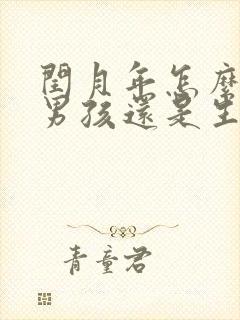 閏月年怎麼
男孩還是生
青童君